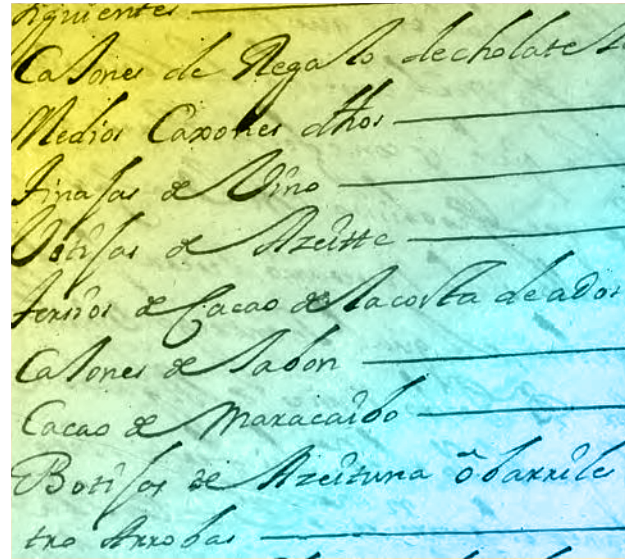 siguientes
Caxones de Regalo de cholate
Medios Caxones dhos
Tinajas de Vino
Votijas de Azeitte
tersios de Cacao de la costa de ados
Caxones de Jabon
Cacao de Maracaibo
Botijas de Azeituna ô barrile
tro Arrobas